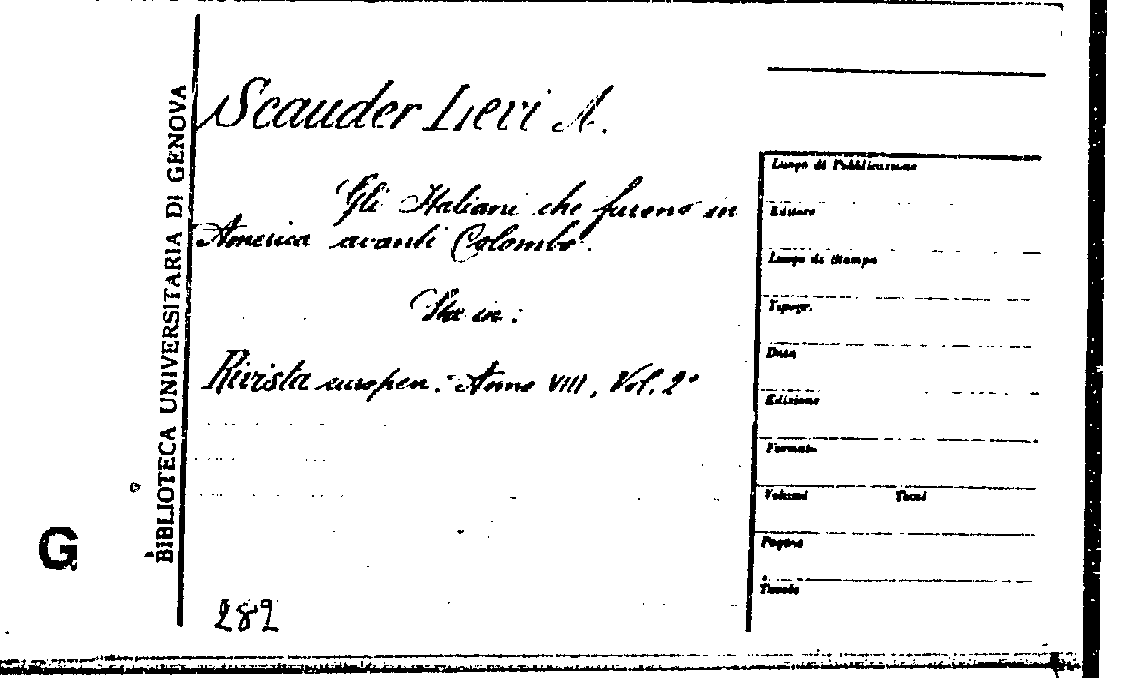 BIBLIOTECA UNIVERSITARIA DI GENOVA
G
Scander Levi A.
Gli Italiani che furono in
America avanti Colombo.
Sta in:
Rivista europea. Anno VIII, Vol. 2°
282
Luogo di Pubblicazione
Editore
Luogo di Stampa
Tipogr.
Data
Edizione
Formato
Volumi Tomi
Pagine
Tavole